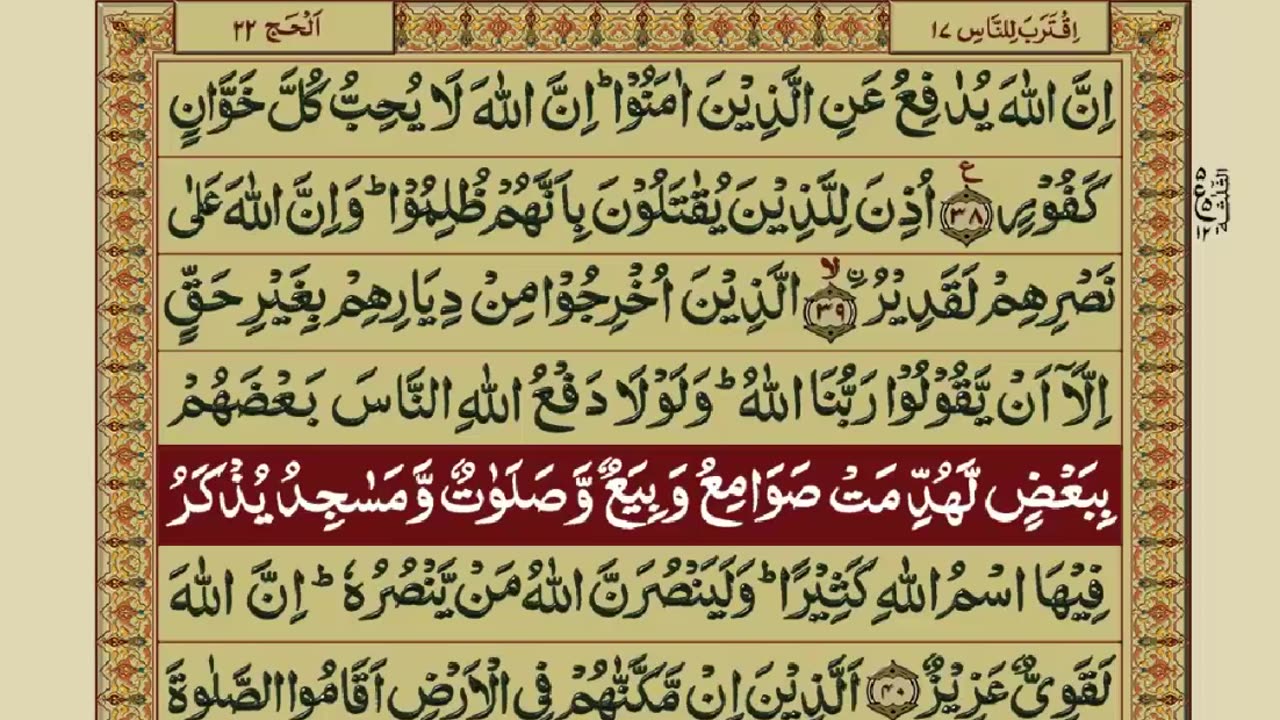 اِقْتَرَبَ لِلنَّاسِ ١٧
اَلْحَج ٢٢
اِنَّ اللّٰهَ يُدٰفِعُ عَنِ الَّذِيْنَ اٰمَنُوْا ؕ اِنَّ اللّٰهَ لَا يُحِبُّ كُلَّ خَوَّانٍ
كَفُوْرٍ ۝٣٨ ع اُذِنَ لِلَّذِيْنَ يُقٰتَلُوْنَ بِاَنَّهُمْ ظُلِمُوْا ؕ وَاِنَّ اللّٰهَ عَلٰى
نَصْرِهِمْ لَقَدِيْرُ ۨ ۝٣٩ لا الَّذِيْنَ اُخْرِجُوْا مِنْ دِيَارِهِمْ بِغَيْرِ حَقٍّ
اِلَّاۤ اَنْ يَّقُوْلُوْا رَبُّنَا اللّٰهُ ؕ وَلَوْلَا دَفْعُ اللّٰهِ النَّاسَ بَعْضَهُمْ
بِبَعْضٍ لَّهُدِّمَتْ صَوَامِعُ وَبِيَعٌ وَّصَلَوٰتٌ وَّمَسٰجِدُ يُذْكَرُ
فِيْهَا اسْمُ اللّٰهِ كَثِيْرًا ؕ وَلَيَنْصُرَنَّ اللّٰهُ مَنْ يَّنْصُرُهٗ ؕ اِنَّ اللّٰهَ
لَقَوِىٌّ عَزِيْزٌ ۝٤٠ اَلَّذِيْنَ اِنْ مَّكَّنّٰهُمْ فِى الْاَرْضِ اَقَامُوا الصَّلٰوةَ